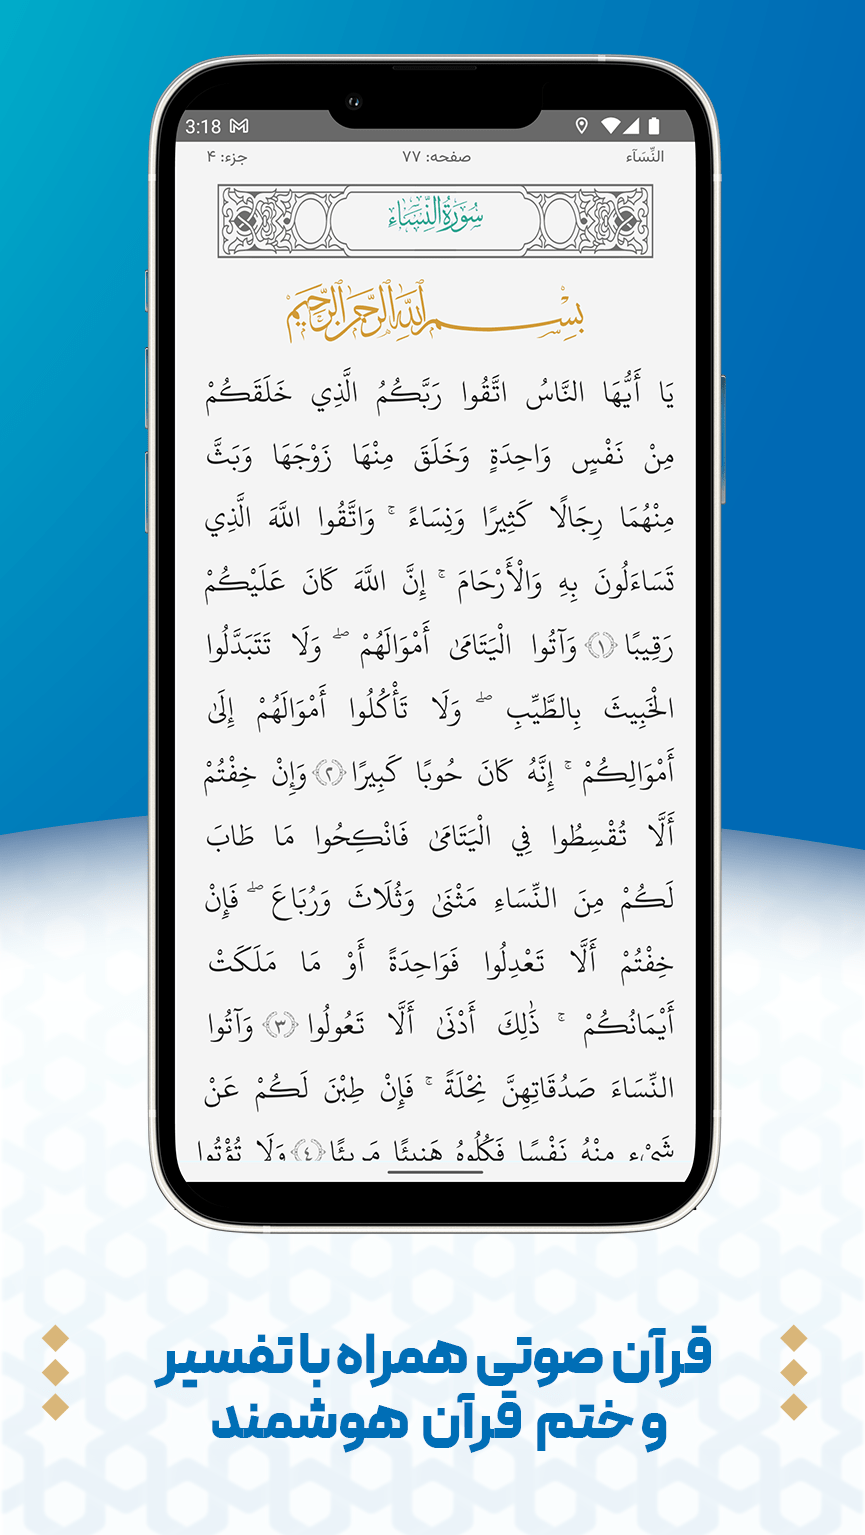 3:18
النِّسَآء صفحه: ۷۷ جزء: ۴
سُورَةُ النِّسَاءِ
بِسْمِ اللَّهِ الرَّحْمَنِ الرَّحِيمِ
يَا أَيُّهَا النَّاسُ اتَّقُوا رَبَّكُمُ الَّذِي خَلَقَكُمْ
مِنْ نَفْسٍ وَاحِدَةٍ وَخَلَقَ مِنْهَا زَوْجَهَا وَبَثَّ
مِنْهُمَا رِجَالًا كَثِيرًا وَنِسَاءً ۚ وَاتَّقُوا اللَّهَ الَّذِي
تَسَاءَلُونَ بِهِ وَالْأَرْحَامَ ۚ إِنَّ اللَّهَ كَانَ عَلَيْكُمْ
رَقِيبًا ﴿۱﴾ وَآتُوا الْيَتَامَىٰ أَمْوَالَهُمْ ۖ وَلَا تَتَبَدَّلُوا
الْخَبِيثَ بِالطَّيِّبِ ۖ وَلَا تَأْكُلُوا أَمْوَالَهُمْ إِلَىٰ
أَمْوَالِكُمْ ۚ إِنَّهُ كَانَ حُوبًا كَبِيرًا ﴿۲﴾ وَإِنْ خِفْتُمْ
أَلَّا تُقْسِطُوا فِي الْيَتَامَىٰ فَانْكِحُوا مَا طَابَ
لَكُمْ مِنَ النِّسَاءِ مَثْنَىٰ وَثُلَاثَ وَرُبَاعَ ۖ فَإِنْ
خِفْتُمْ أَلَّا تَعْدِلُوا فَوَاحِدَةً أَوْ مَا مَلَكَتْ
أَيْمَانُكُمْ ۚ ذَٰلِكَ أَدْنَىٰ أَلَّا تَعُولُوا ﴿۳﴾ وَآتُوا
النِّسَاءَ صَدُقَاتِهِنَّ نِحْلَةً ۚ فَإِنْ طِبْنَ لَكُمْ عَنْ
شَيْءٍ مِنْهُ نَفْسًا فَكُلُوهُ هَنِيئًا مَرِيئًا ﴿٤﴾ وَلَا تُؤْتُوا
قرآن صوتی همراه با تفسیر
و ختم قرآن هوشمند